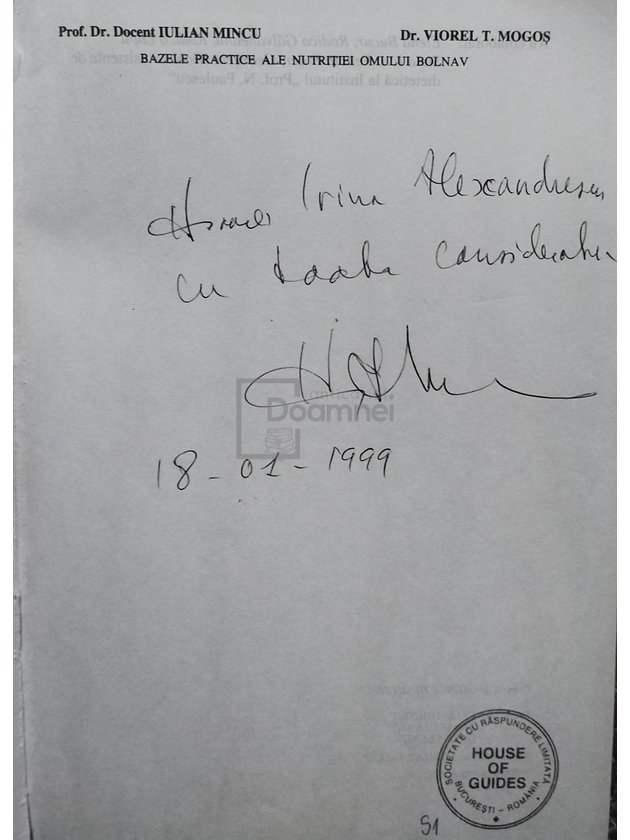 Prof. Dr. Docent IULIAN MINCU
Dr. VIOREL T. MOGOȘ
BAZELE PRACTICE ALE NUTRIȚIEI OMULUI BOLNAV
Irina Alexandrescu
cu toata
anticariat
Doamnei
18-01-1999
SOCIETATE CU RĂSPUNDERE LIMITATĂ
HOUSE
OF
GUIDES
BUCUREȘTI - ROMÂNIA
51